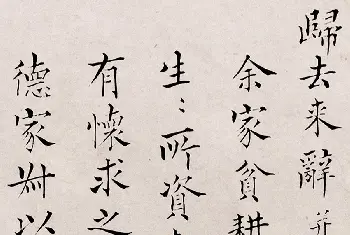 歸去来辭并
余家貧耕
生〻所資
有懷求之
德家叔以